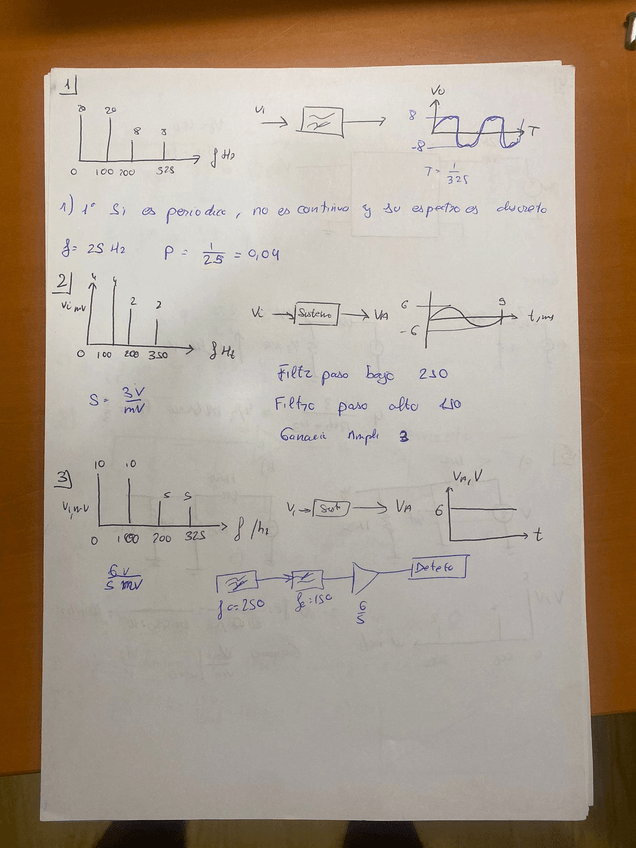 1)
20 20 8 8
0 100 200 325 f Hz
Vi
Vo
8
-8
T
T = 1/325
1) 1º Si es periodica, no es continua y su espectro es discreto
f = 25 Hz P = 1/25 = 0,04
2)
4 4 2 2
Vi mV
0 100 200 350 f Hz
Vi Sistema VA
6
-6
5 t, ms
Filtr paso bajo 250
S = 3V/mV
Filtro paso alto 150
Ganacia Ampli 3
3)
10 10 5 5
Vi, mV
0 100 200 325 f / hz
Vi Sist VA
VA, V
6
t
6 V/5 mV
fc = 250
fc = 150
6/5
Detecto